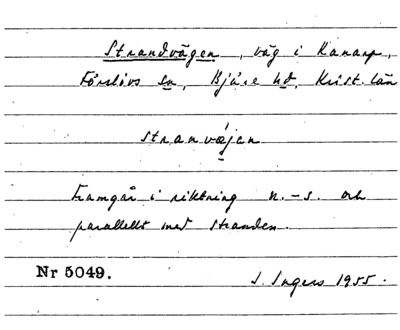 Strandvägen, väg i Kanarp,
Förslövs sn, Bjäre hd, Krist. län
stranvæjen
Framgår i riktning n.-s. och
parallellt med stranden.
Nr 5049.
I. Ingers 1955.